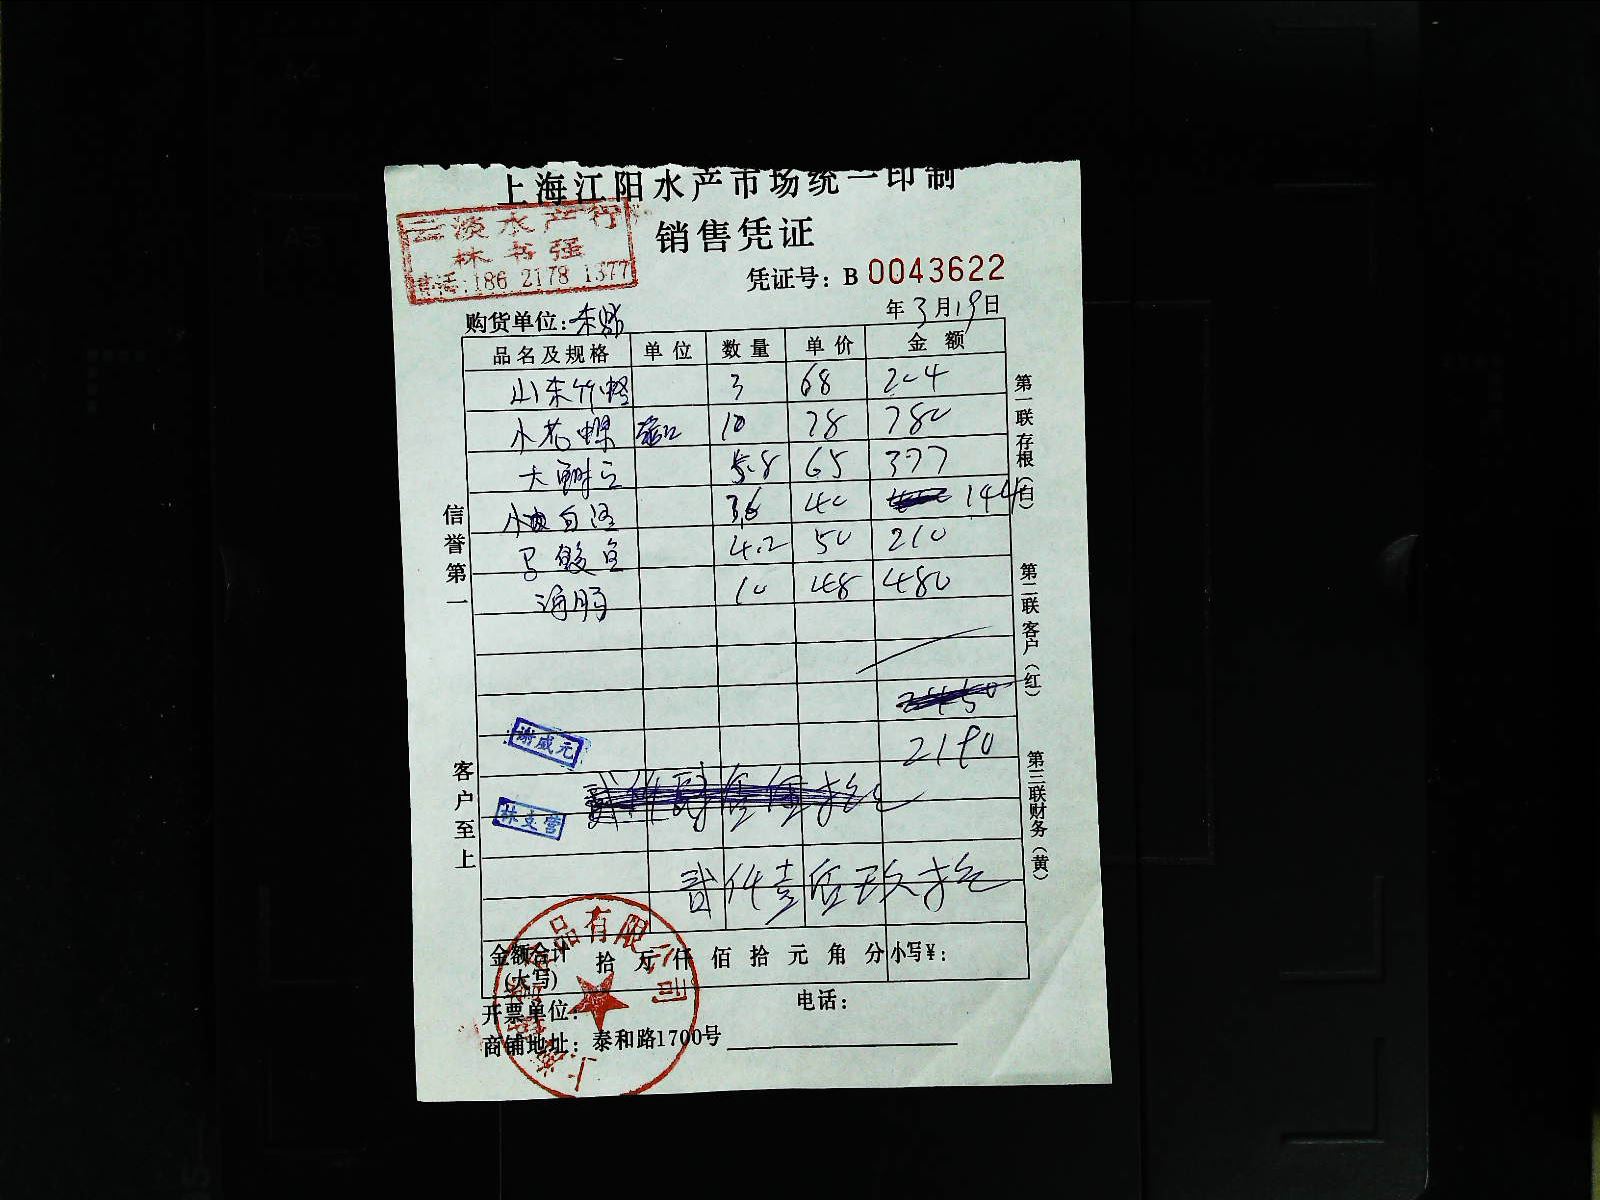 上海江阳水产市场统一印制
销售凭证
云淡水产行
林书强
电话:186 2178 1377
凭证号：B 0043622
购货单位：
年3月19日
品名及规格 单位 数量 单价 金额
山东竹蛏 3 68 204
小花螺 10 78 780
大鲥 5.8 65 377
小白 3.6 40 144
马鲛鱼 4.2 50 210
海肠 10 48 480
2450
2190
谢咸元
贰仟肆佰伍拾
林支营
贰仟壹佰玖拾
金额合计(大写) 拾 万 仟 佰 拾 元 角 分 小写¥：
开票单位：
电话：
商铺地址：泰和路1700号
信誉第一
客户至上
第一联 存根(白)
第二联 客户(红)
第三联 财务(黄)
上海 品有限公司